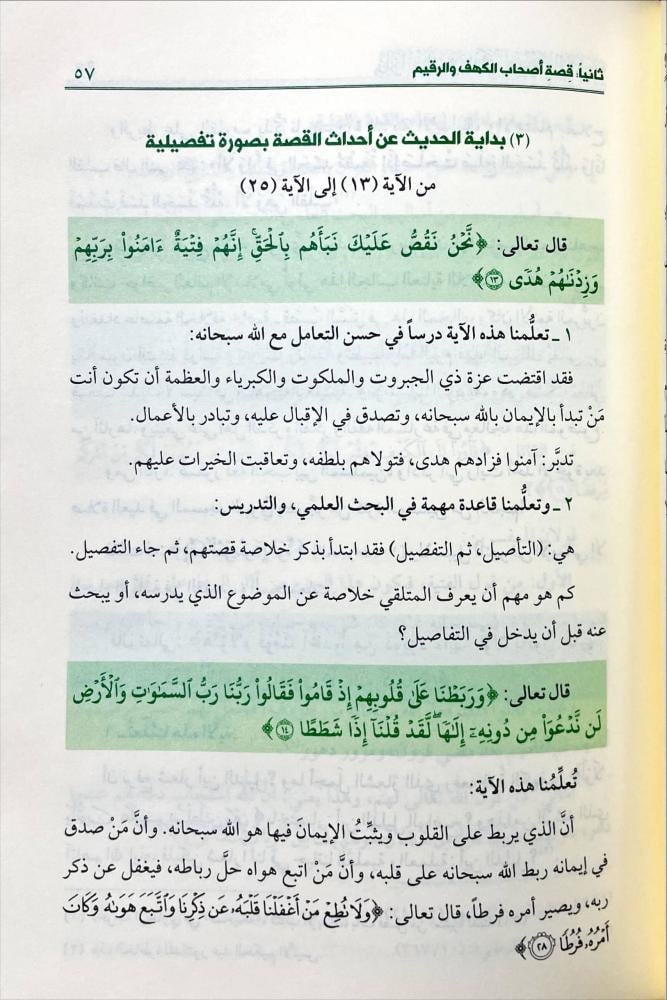 ثانياً: قصة أصحاب الكهف والرقيم ٥٧
(٣) بداية الحديث عن أحداث القصة بصورة تفصيلية
من الآية (١٣) إلى الآية (٢٥)
قال تعالى: ﴿نَّحْنُ نَقُصُّ عَلَيْكَ نَبَأَهُم بِالْحَقِّ ۚ إِنَّهُمْ فِتْيَةٌ ءَامَنُواْ بِرَبِّهِمْ
وَزِدْنَٰهُمْ هُدًى ١٣﴾
١ ـ تعلُّمنا هذه الآية درساً في حسن التعامل مع الله سبحانه:
فقد اقتضت عزة ذي الجبروت والملكوت والكبرياء والعظمة أن تكون أنت
مَنْ تبدأ بالإيمان بالله سبحانه، وتصدق في الإقبال عليه، وتبادر بالأعمال.
تدبَّر: آمنوا فزادهم هدى، فتولاهم بلطفه، وتعاقبت الخيرات عليهم.
٢ ـ وتعلُّمنا قاعدة مهمة في البحث العلمي، والتدريس:
هي: (التأصيل، ثم التفصيل) فقد ابتدأ بذكر خلاصة قصتهم، ثم جاء التفصيل.
كم هو مهم أن يعرف المتلقي خلاصة عن الموضوع الذي يدرسه، أو يبحث
عنه قبل أن يدخل في التفاصيل؟
قال تعالى: ﴿وَرَبَطْنَا عَلَىٰ قُلُوبِهِمْ إِذْ قَامُواْ فَقَالُواْ رَبُّنَا رَبُّ السَّمَٰوَٰتِ وَالْأَرْضِ
لَن نَّدْعُوَاْ مِن دُونِهِۦٓ إِلَٰهًا ۖ لَّقَدْ قُلْنَآ إِذًا شَطَطًا ١٤﴾
تُعلِّمُنا هذه الآية:
أنَّ الذي يربط على القلوب ويثبِّتُ الإيمانَ فيها هو الله سبحانه. وأنَّ مَنْ صدق
في إيمانه ربط الله سبحانه على قلبه، وأنَّ مَنْ اتبع هواه حلَّ رباطه، فيغفل عن ذكر
ربه، ويصير أمره فرطاً، قال تعالى: ﴿وَلَا تُطِعْ مَنْ أَغْفَلْنَا قَلْبَهُۥ عَن ذِكْرِنَا وَاتَّبَعَ هَوَىٰهُ وَكَانَ
أَمْرُهُۥ فُرُطًا ٢٨﴾